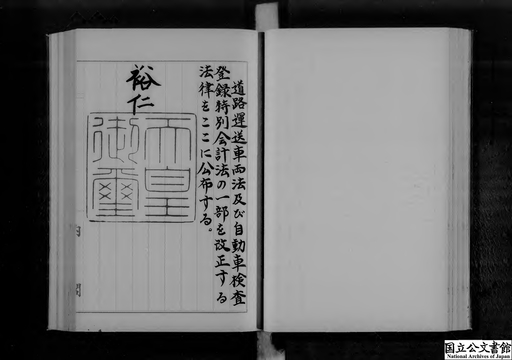 道路運送車両法及び自動車検査
登録特別会計法の一部を改正する
法律をここに公布する。
裕仁
天皇
御璽
内閣
国立公文書館
National Archives of Japan